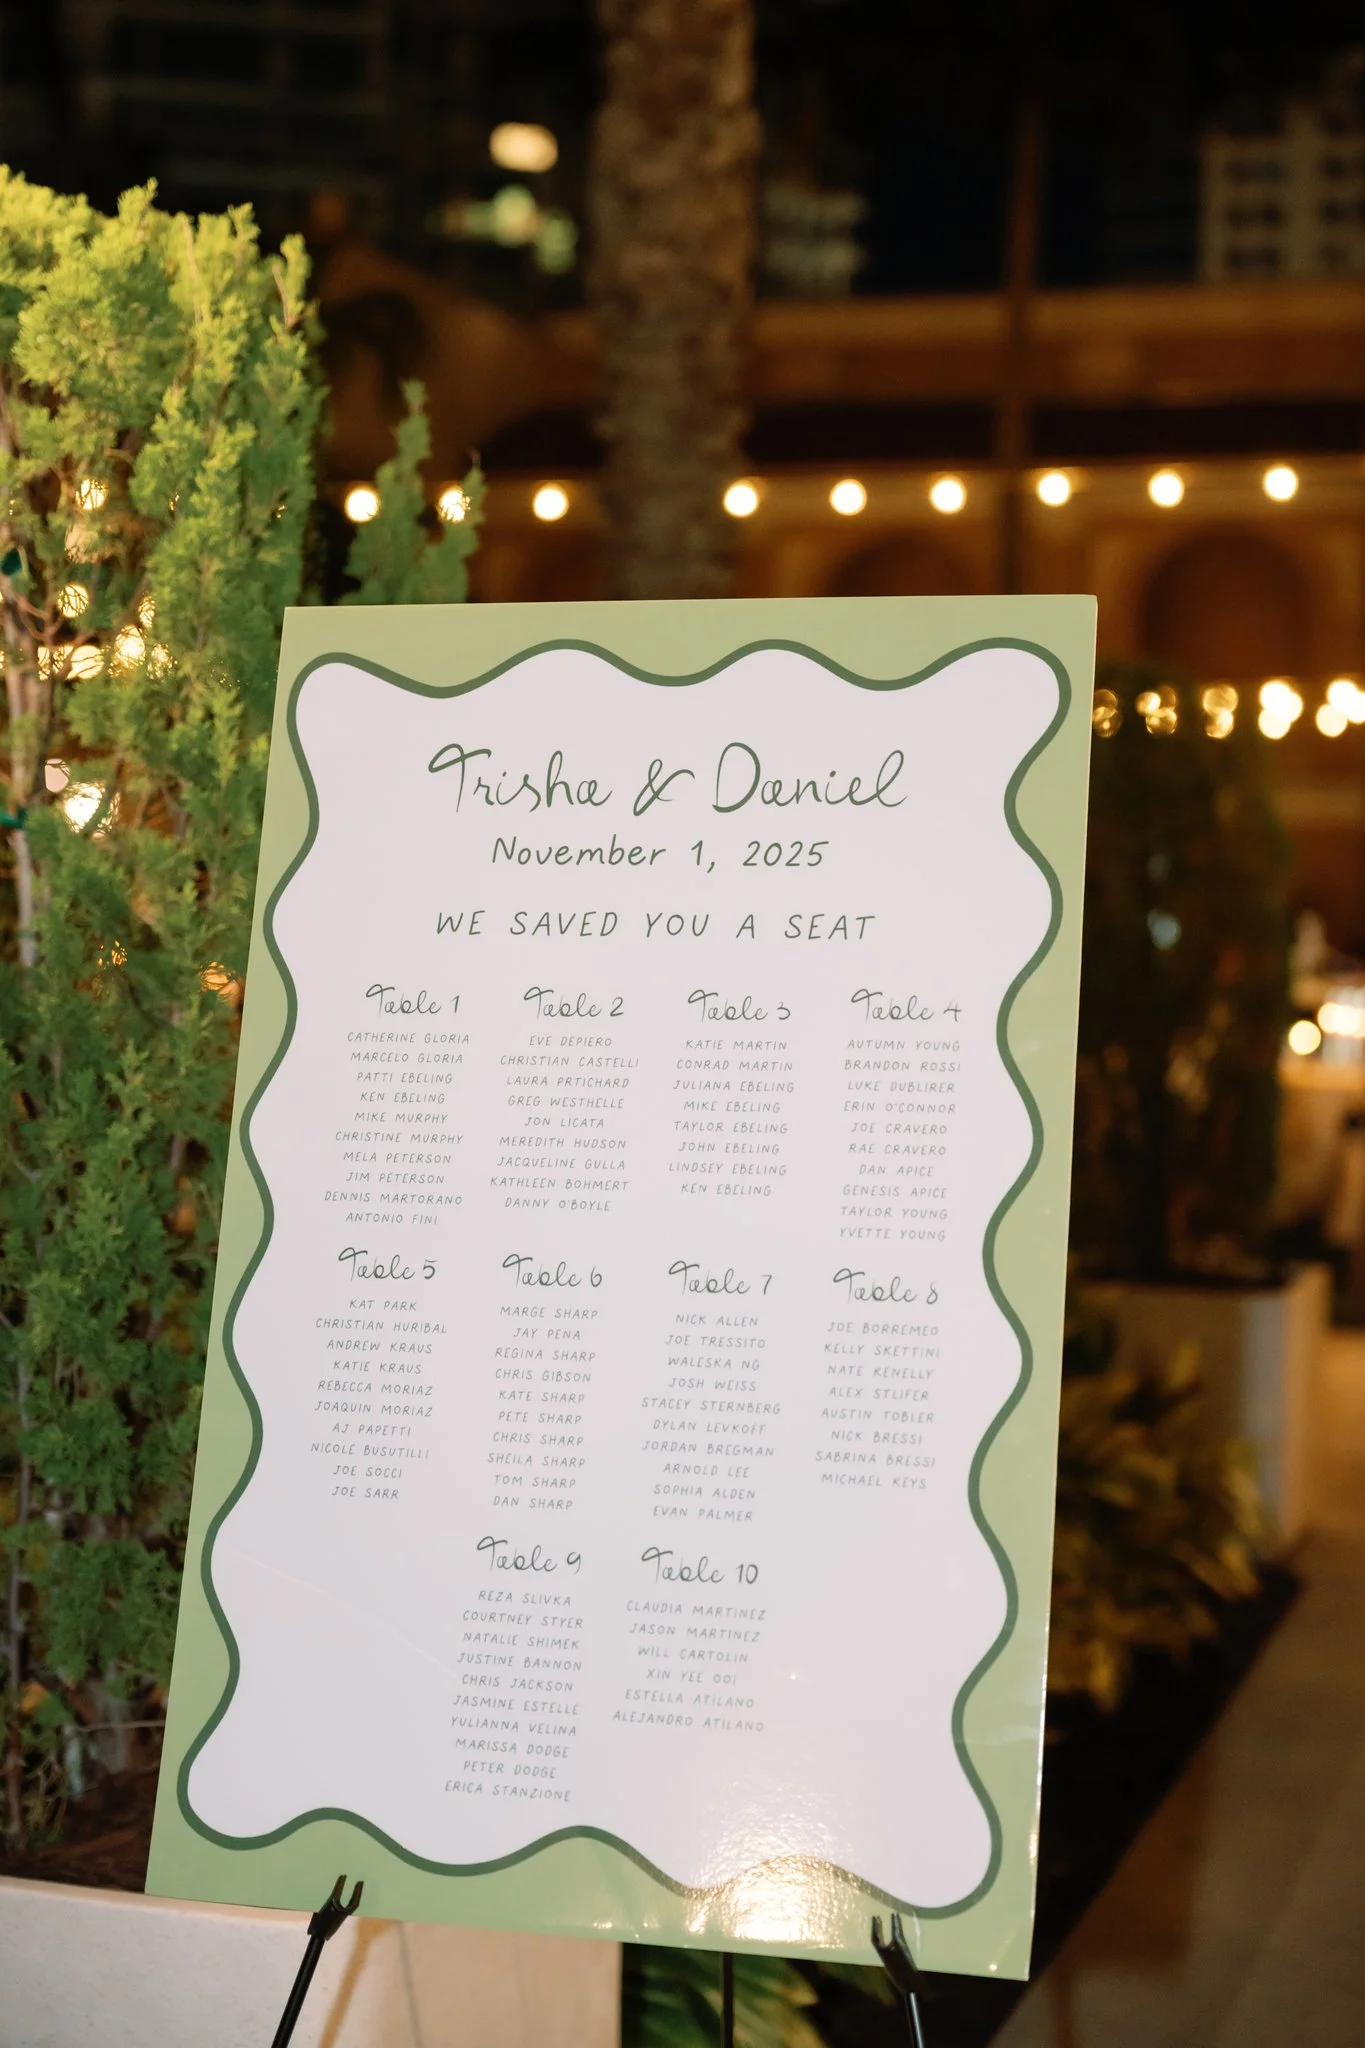 Trisha & Daniel
November 1, 2025
WE SAVED YOU A SEAT
Table 1
CATHERINE GLORIA
MARCELO GLORIA
PATTI EBELING
KEN EBELING
MIKE MURPHY
CHRISTINE MURPHY
MELA PETERSON
JIM PETERSON
DENNIS MARTORANO
ANTONIO FINI
Table 2
EVE DEPIERO
CHRISTIAN CASTELLI
LAURA PRTICHARD
GREG WESTHELLE
JON LICATA
MEREDITH HUDSON
JACQUELINE GULLA
KATHLEEN BOHMERT
DANNY O'BOYLE
Table 3
KATIE MARTIN
CONRAD MARTIN
JULIANA EBELING
MIKE EBELING
TAYLOR EBELING
JOHN EBELING
LINDSEY EBELING
KEN EBELING
Table 4
AUTUMN YOUNG
BRANDON ROSSI
LUKE DUBLIRER
ERIN O'CONNOR
JOE CRAVERO
RAE CRAVERO
DAN APICE
GENESIS APICE
TAYLOR YOUNG
YVETTE YOUNG
Table 5
KAT PARK
CHRISTIAN HURIBAL
ANDREW KRAUS
KATIE KRAUS
REBECCA MORIAZ
JOAQUIN MORIAZ
AJ PAPETTI
NICOLE BUSUTILLI
JOE SOCCI
JOE SARR
Table 6
MARGE SHARP
JAY PENA
REGINA SHARP
CHRIS GIBSON
KATE SHARP
PETE SHARP
CHRIS SHARP
SHEILA SHARP
TOM SHARP
DAN SHARP
Table 7
NICK ALLEN
JOE TRESSITO
WALESKA NG
JOSH WEISS
STACEY STERNBERG
DYLAN LEVKOFF
JORDAN BREGMAN
ARNOLD LEE
SOPHIA ALDEN
EVAN PALMER
Table 8
JOE BORREMEO
KELLY SKETTINI
NATE KENELLY
ALEX STLIFER
AUSTIN TOBLER
NICK BRESSI
SABRINA BRESSI
MICHAEL KEYS
Table 9
REZA SLIVKA
COURTNEY STYER
NATALIE SHIMEK
JUSTINE BANNON
CHRIS JACKSON
JASMINE ESTELLE
YULIANNA VELINA
MARISSA DODGE
PETER DODGE
ERICA STANZIONE
Table 10
CLAUDIA MARTINEZ
JASON MARTINEZ
WILL CARTOLIN
XIN YEE OOI
ESTELLA ATILANO
ALEJANDRO ATILANO